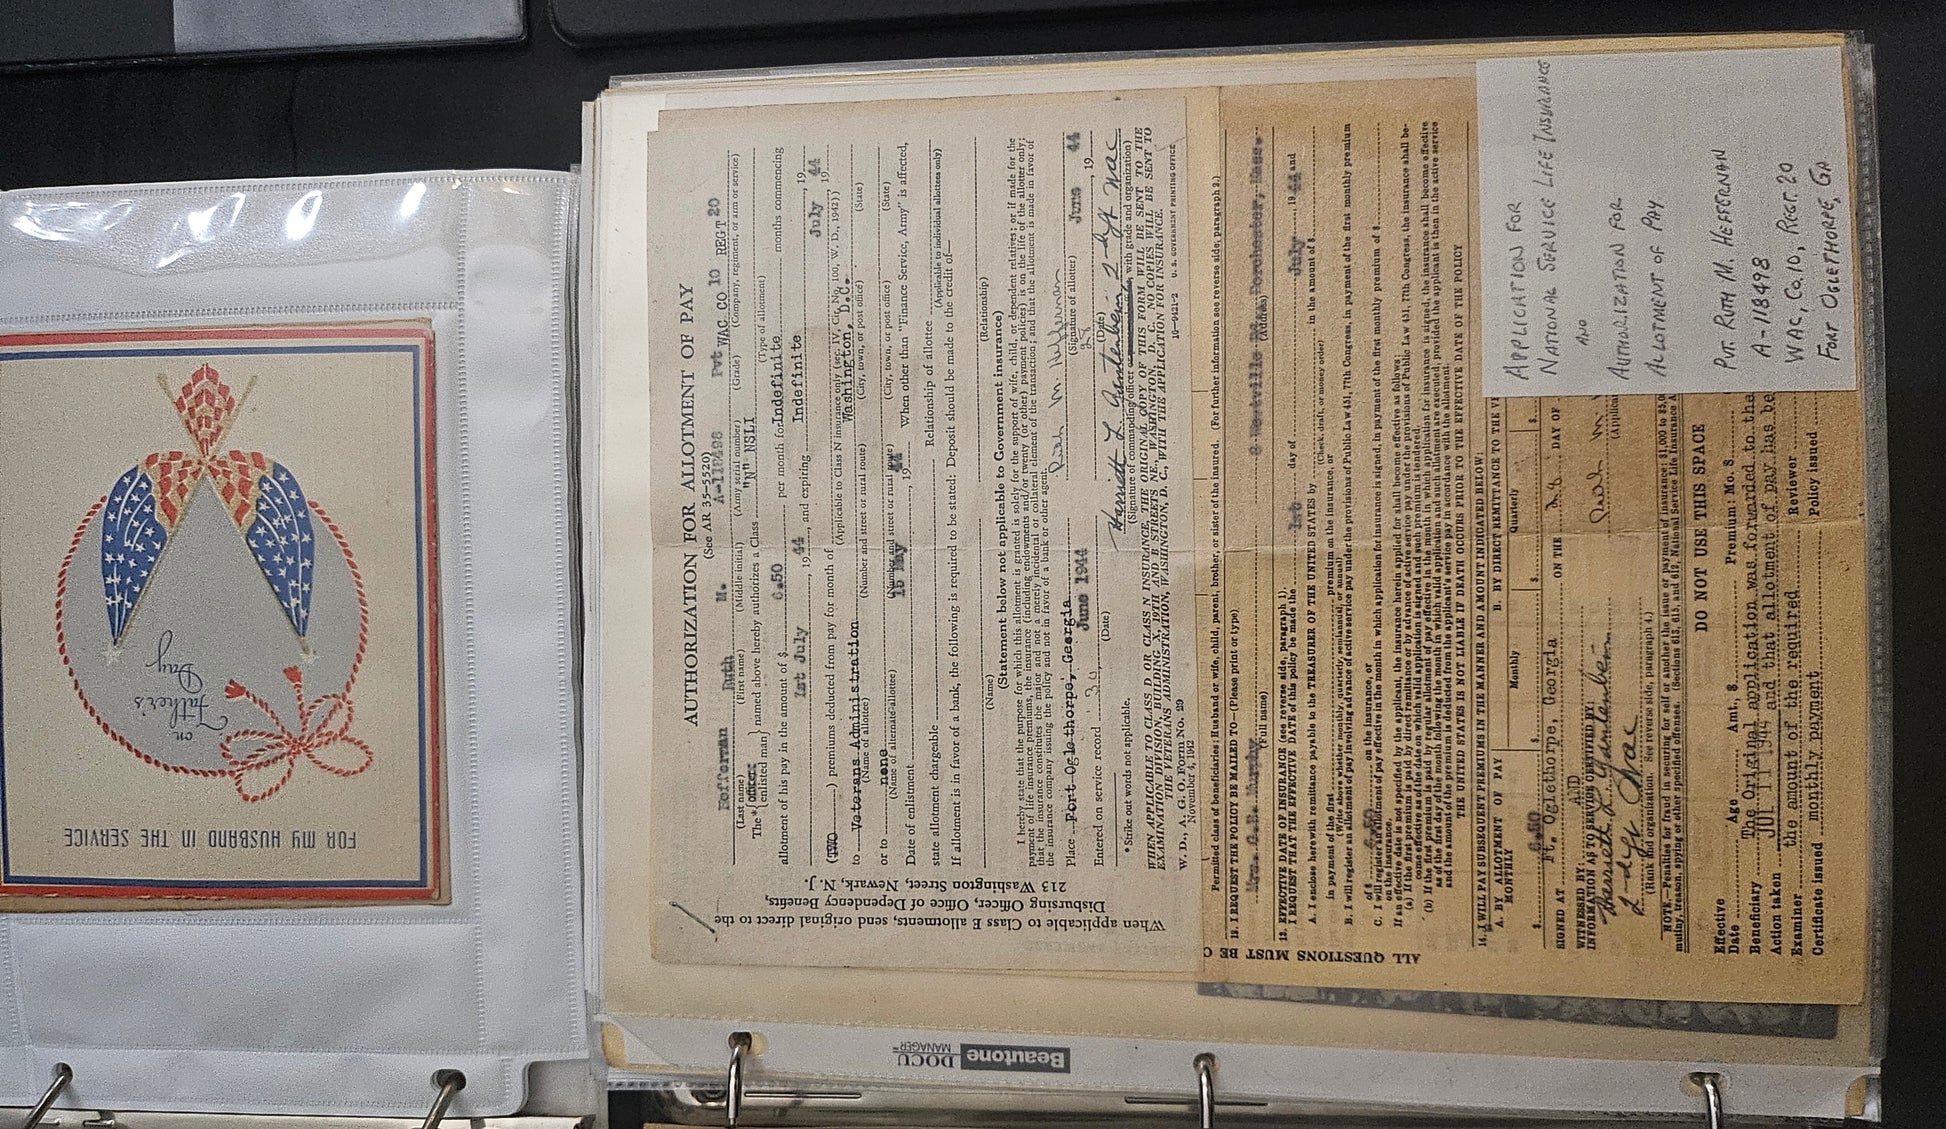 FOR MY HUSBAND IN THE SERVICE
on
Father's
Day
When applicable to Class E allotments, send original direct to the
Disbursing Officer, Office of Dependency Benefits,
213 Washington Street, Newark, N. J.
AUTHORIZATION FOR ALLOTMENT OF PAY
(See AR 35-5520)
Hefferman Ruth M. A-118498 Pvt WAC CO 10 REGT 20
(Last name) (First name) (Middle initial) (Army serial number) (Grade) (Company, regiment, or arm or service)
The * {officer enlisted man} named above hereby authorizes a Class "N" NSLI
(Type of allotment)
allotment of his pay in the amount of $ 6.50 per month for Indefinite months commencing
1st July, 1944, and expiring Indefinite July, 1944
(TWO) premiums deducted from pay for month of 19
(Applicable to Class N insurance only (sec. IV, Cir. No. 100, W. D., 1942))
to Veterans Administration Washington, D.C.
(Name of allottee) (Number and street or rural route) (City, town, or post office) (State)
or to none
(Name of alternate allottee) (Number and street or rural route) (City, town, or post office) (State)
Date of enlistment 15 May, 1944 When other than "Finance Service, Army" is affected,
state allotment chargeable Relationship of allottee
(Applicable to individual allottees only)
If allotment is in favor of a bank, the following is required to be stated: Deposit should be made to the credit of—
(Name) (Relationship)
(Statement below not applicable to Government insurance)
I hereby state that the purpose for which this allotment is granted is solely for the support of wife, child, or dependent relatives; or if made for the
payment of life insurance premiums, the insurance (including endowments and/or twenty (or other) payment policies) is on the life of the allotter only;
that the insurance constitutes the major and not a merely incidental or collateral element of the transaction; and that the allotment is made in favor of
the insurance company issuing the policy and not in favor of a bank or other agent.
Ruth M. Heffernan
Place Fort Oglethorpe, Georgia
(Signature of allotter)
June 1944 28 June 44
Entered on service record 30, , 19
(Date) (Date)
Harriett L Gantenbein, 2-d Lt WAC
(Signature of commanding officer, with grade and organization)
* Strike out words not applicable.
WHEN APPLICABLE TO CLASS D OR CLASS N INSURANCE, THE ORIGINAL COPY OF THIS FORM WILL BE SENT TO THE
EXAMINATION DIVISION, BUILDING X, 19TH AND B STREETS NE., WASHINGTON, D. C. NO COPIES WILL BE SENT TO
THE VETERANS ADMINISTRATION, WASHINGTON, D. C., WITH THE APPLICATION FOR INSURANCE.
W. D., A. G. O. Form No. 29
November 4, 1942
16-9421-2 U. S. GOVERNMENT PRINTING OFFICE
ALL QUESTIONS MUST BE
Permitted class of beneficiaries: Husband or wife, child, parent, brother, or sister of the insured. (For further information see reverse side, paragraph 2.)
12. I REQUEST THE POLICY BE MAILED TO—(Please print or type)
Mrs. Murphy Dorchester, Mass.
(Full name) (Address)
13. EFFECTIVE DATE OF INSURANCE (see reverse side, paragraph 1).
I REQUEST THAT THE EFFECTIVE DATE OF this policy be made the 1st day of July, 1944 and
A. I enclose herewith remittance payable to the TREASURER OF THE UNITED STATES by in the amount of $
(Check, draft, or money order)
in payment of the first premium on the insurance, or
(Write above whether monthly, quarterly, semiannual, or annual)
B. I will register an allotment of pay involving advance of active service pay under the provisions of Public Law 451, 77th Congress, in payment of the first monthly premium
of $ on the insurance, or
C. I will register an allotment of pay effective in the month in which application for insurance is signed, in payment of the first monthly premium of $
on the insurance.
If an effective date is not specified by the applicant, the insurance herein applied for shall become effective as follows:
(a) If the first premium is paid by direct remittance or by advance of active service pay under the provisions of Public Law 451, 77th Congress, the insurance shall be-
come effective as of the date on which valid application is signed and such premium is tendered.
(b) If the first premium is paid by regular allotment of pay effective in the month in which application for insurance is signed, the insurance shall become effective
as of the first day of the month following the month in which valid application and such allotment are executed, provided the applicant is then in the active service
and the amount of the premium is deducted from the applicant's service pay in accordance with the allotment.
THE UNITED STATES IS NOT LIABLE IF DEATH OCCURS PRIOR TO THE EFFECTIVE DATE OF THE POLICY
14. I WILL PAY SUBSEQUENT PREMIUMS IN THE MANNER AND AMOUNT INDICATED BELOW:
A. BY ALLOTMENT OF PAY B. BY DIRECT REMITTANCE TO THE
MONTHLY Monthly Quarterly
$ 6.50 $ $ $
SIGNED AT Ft. Oglethorpe, Georgia ON THE 28 DAY OF
WITNESSED BY: AND
INFORMATION AS TO SERVICE CERTIFIED BY:
Harriett L. Gantenbein
2-d Lt WAC
Ruth M
(Rank and organization. See reverse side, paragraph 4.)
NOTE.—Penalties for fraud in securing for self or another the issue or payment of insurance: $1,000 to $5,0
mutiny, treason, spying or other specified offenses. (Sections 613, 615, and 612, National Service Life Insurance A
DO NOT USE THIS SPACE
Effective
Date Age Amt. $ Premium: Mo. $
Beneficiary The Original application was forwarded to the
Action taken JUL 11 1944 and that allotment of pay has be
Examiner the amount of the required Reviewer
Certificate issued monthly payment Policy issued
APPLICATION FOR
NATIONAL SERVICE LIFE INSURANCE
AND
AUTHORIZATION FOR
ALLOTMENT OF PAY
PVT. RUTH M. HEFFERNAN
A-118498
WAC, CO. 10, REGT. 20
FORT OGLETHORPE, GA
Beautone DOCU
MANAGER™